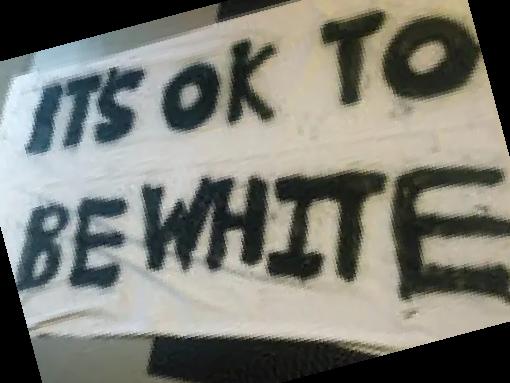 ITS OK TO
BE WHITE